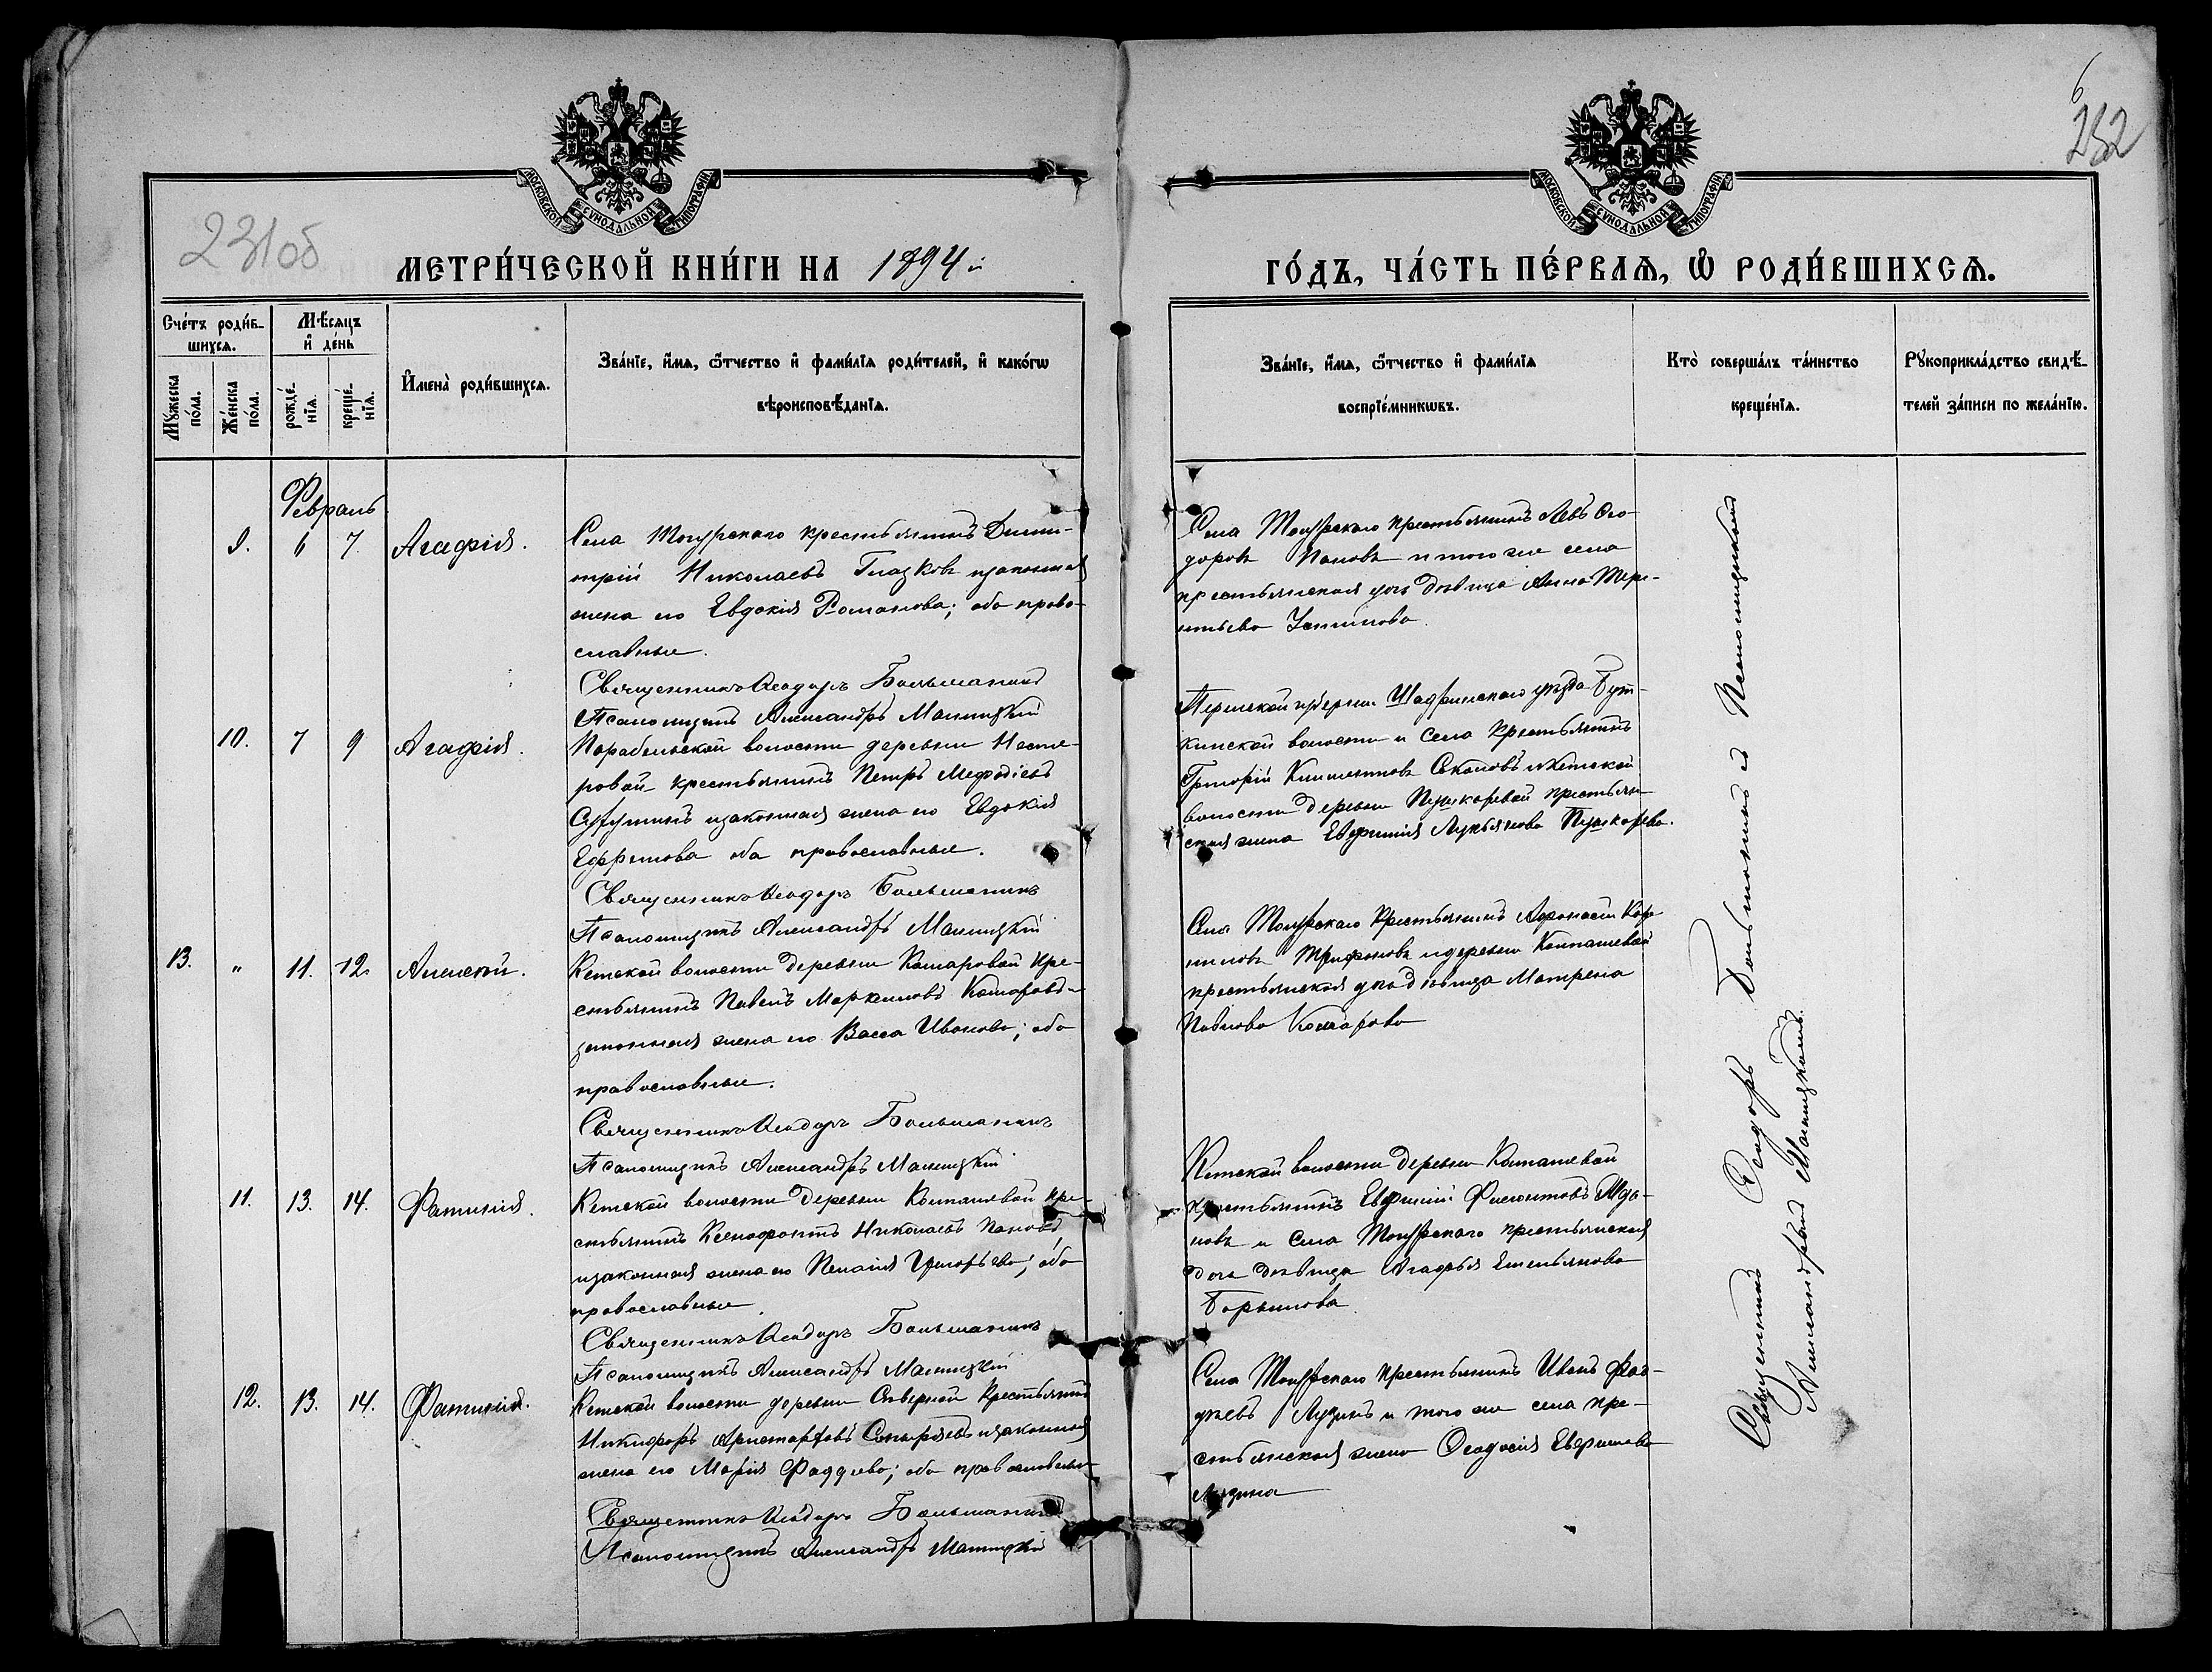 6
232
231об
МОСКОВСКОЙ СѴНОДАЛЬНОЙ ТИПОГРАФІИ
МОСКОВСКОЙ СѴНОДАЛЬНОЙ ТИПОГРАФІИ
МЕТРИ́ЧЕСКОЙ КНИ́ГИ НА 1894 й
ГО́ДЪ, ЧА́СТЬ ПЕ́РВАЯ, Ѡ РОДИ́ВШИХСѦ.
Сче́тъ роди́в-
шихсѧ.
Мꙋ́жеска по́ла.
Же́нска по́ла.
Мѣ́сѧцъ
и҆ де́нь
рожде́-
нїѧ.
креще́-
нїѧ.
И҆мена̀ роди́вшихсѧ.
Зва́нїе, и҆́мѧ, ѻ҆́тчество и҆ фами́лїѧ роди́телей, и҆ како́гѡ
вѣроисповѣ́данїѧ.
Зва́нїе, и҆́мѧ, ѻ҆́тчество и҆ фами́лїѧ
воспрїе́мникѡвъ.
Кто̀ соверша́лъ та́инство
креще́нїѧ.
Рꙋкоприкла́дство свидѣ́-
телей за́писи по жела́нїю.
Февраль
9. 6 7. Агафія.
Села Тогурскаго крестьянинъ Дими-
трій Николаевъ Глазковъ и законная
жена его Евдокія Романова; оба право-
славные.
Священникъ Ѳеодоръ Большанинъ
Псаломщикъ Александръ
Села Тогурскаго крестьянинъ Левъ Ѳео-
доровъ Пановъ и того же села
крестьянская дочь дѣвица Анна Тере-
нтьева
10. 7 9 Агафія.
Парабельской волости деревни Несте-
ровой крестьянинъ Петръ Мефодіевъ
и законная жена его Евдокія
Ефимова оба православные.
Священникъ Ѳеодоръ Большанинъ
Псаломщикъ Александръ
Пермской губерніи Шадринскаго уѣзда Бут-
кинской волости и села крестьянинъ
Григорій Климентовъ и Кетской
волости деревни Пушкаревой крестьян-
ская жена Евфимія Лукьянова Пушкарева.
13. " 11. 12. Алексѣй.
Кетской волости деревни Комаровой кре-
стьянинъ Павелъ Маркеловъ Комаровъ и
законная жена его Васса Иванова; оба
православные.
Священникъ Ѳеодоръ Большанинъ
Псаломщикъ Александръ
Села Тогурскаго крестьянинъ Афанасій Кор-
ниловъ Трифоновъ и деревни Колпашевой
крестьянская дочь дѣвица Матрена
Павлова Комарова
11. 13. 14. Фотинія.
Кетской волости деревни Колпашевой кре-
стьянинъ Ксенофонтъ Николаевъ Пановъ
и законная жена его Пелагія Григорьева; оба
православные.
Священникъ Ѳеодоръ Большанинъ
Псаломщикъ Александръ
Кетской волости деревни Колпашевой
крестьянинъ Евфимій
новъ и села Тогурскаго крестьянская
дочь дѣвица Агафья Емельянова
12. 13. 14. Фотинія.
Кетской волости деревни Сѣверной крестьянинъ
Никифоръ Аристарховъ и законная
жена его Марія Фаддеева; оба православные
Священникъ Ѳеодоръ Большанинъ
Псаломщикъ Александръ
Села Тогурскаго крестьянинъ Иванъ Фад-
дѣевъ Лузинъ и того же села кре-
стьянская жена Ѳеодосія Евфимова
Лузина
Священникъ Ѳеодоръ Большанинъ съ Псаломщикомъ
Александромъ